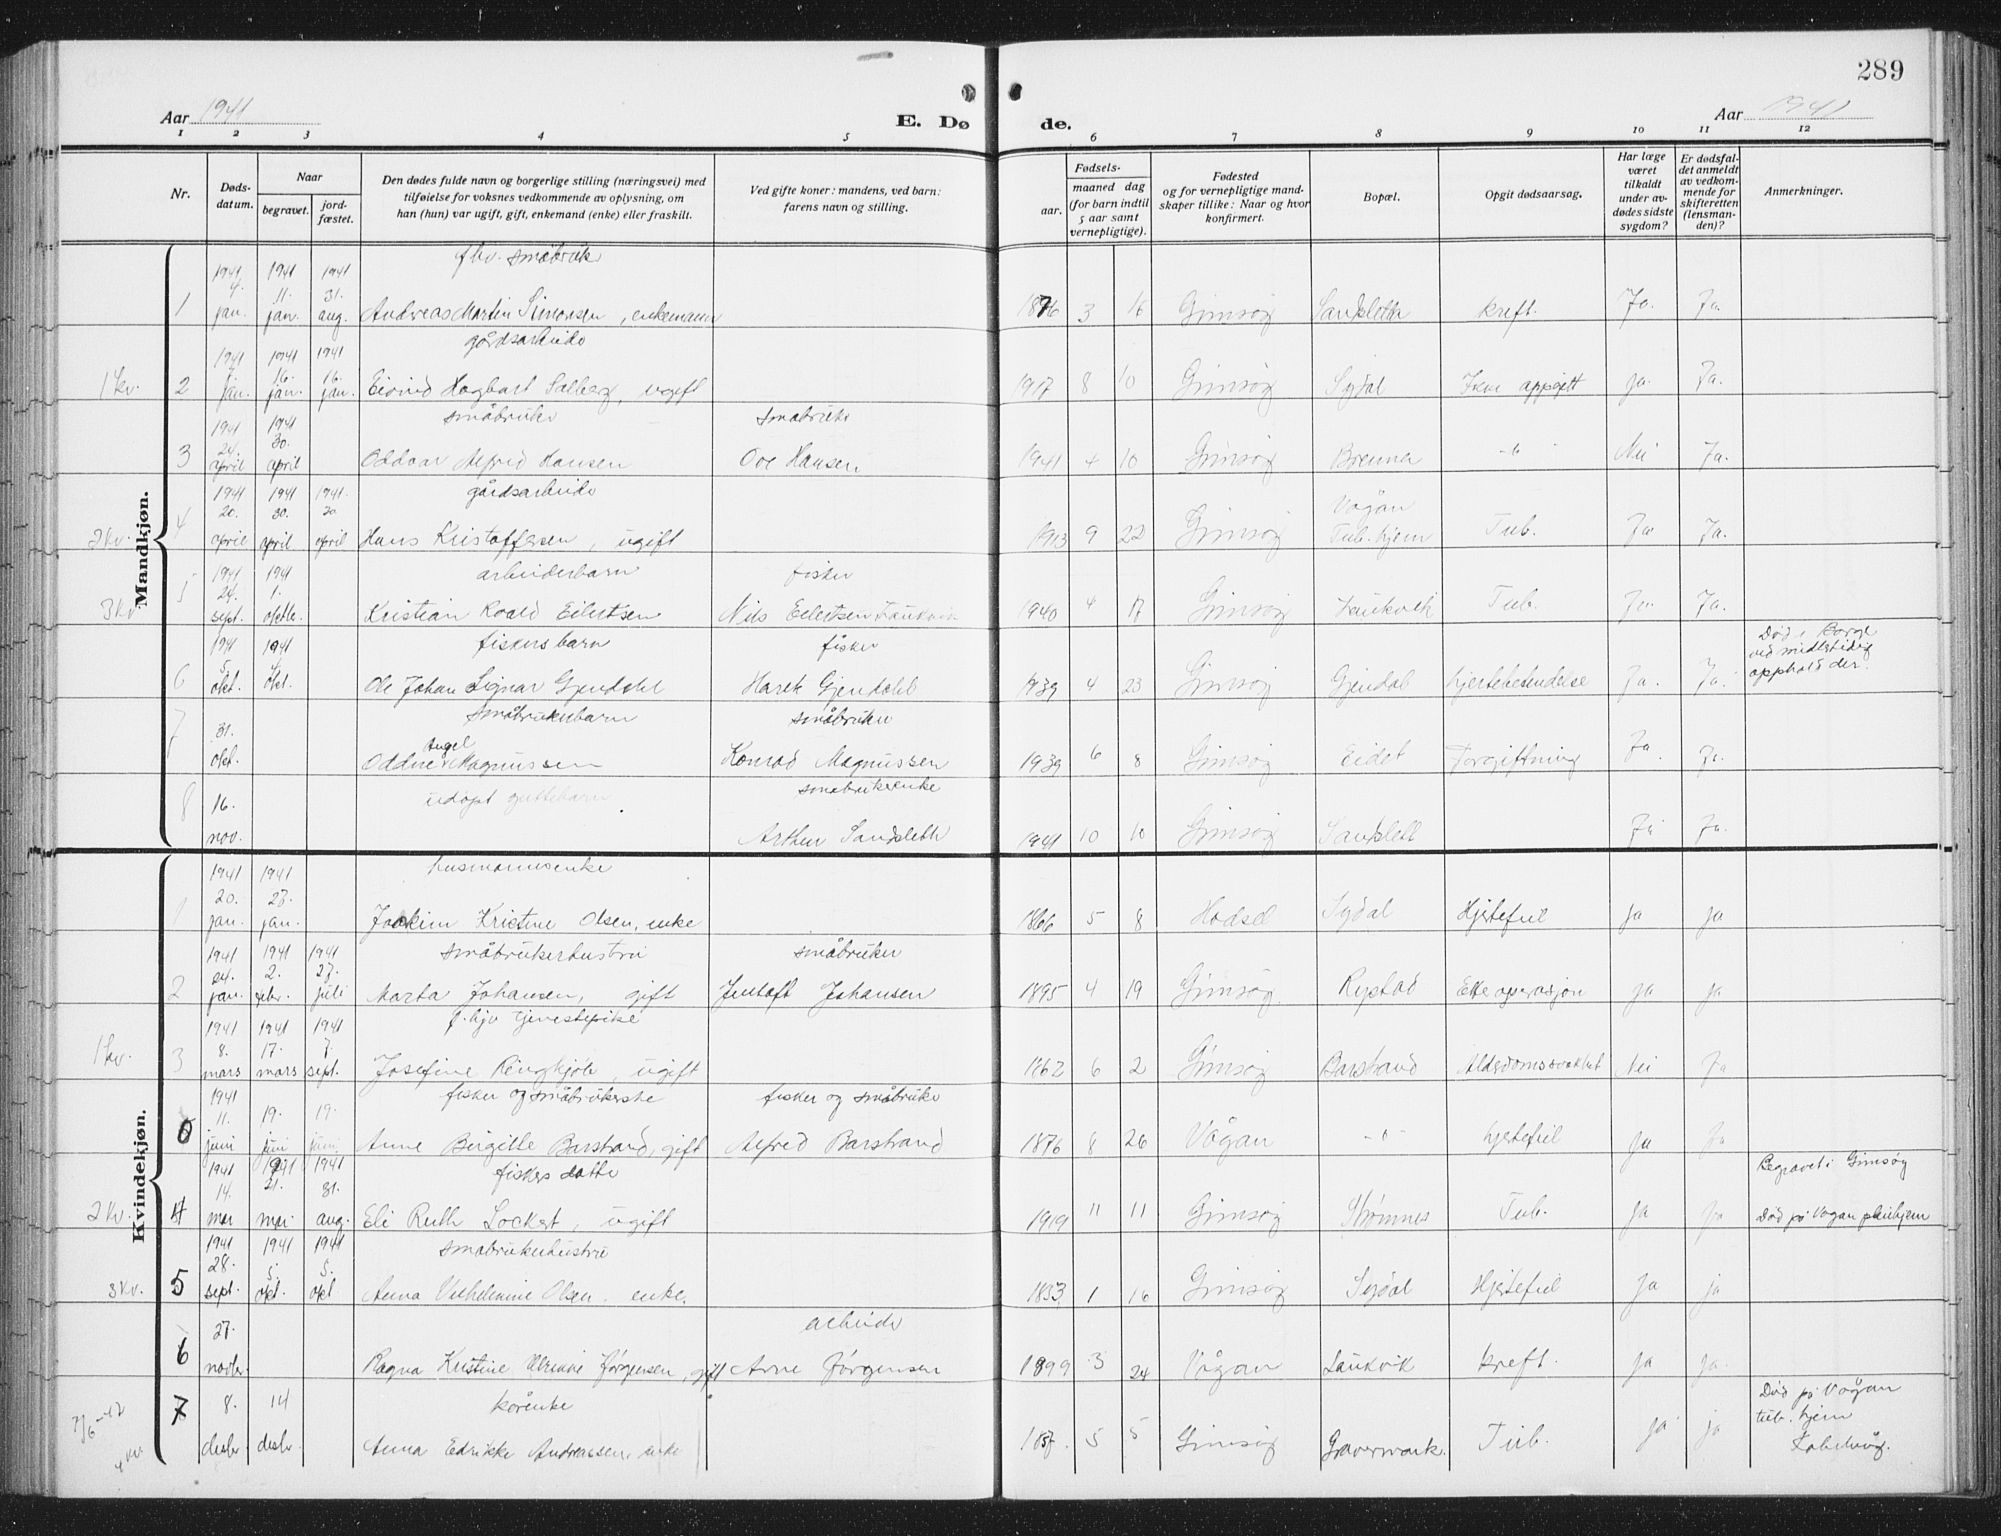 289
Aar 1941
E. Dø
de.
Aar 1941
1 2 3 4 5 6 7 8 9 10 11 12
Nr.
Døds-
datum.
Naar
begravet.
jord-
fæstet.
Den dødes fulde navn og borgerlige stilling (næringsvei) med
tilføielse for voksnes vedkommende av oplysning, om
han (hun) var ugift, gift, enkemand (enke) eller fraskilt.
Ved gifte koner: mandens, ved barn:
farens navn og stilling.
Fødsels-
aar.
maaned dag
(for barn indtil
5 aar samt
vernepligtige).
Fødested
og for vernepligtige mand-
skaper tillike: Naar og hvor
konfirmert.
Bopæl.
Opgit dødsaarsag.
Har læge
været
tilkaldt
under av-
dødes sidste
sygdom?
Er dødsfal-
det anmeldt
av vedkom-
mende for
skifteretten
(lensman-
den)?
Anmerkninger.
Mandkjøn.
fhv. småbruker
1941 1941 1941
4. 11. 31.
1 jan. jan. aug. Andreas Martin Simonsen, enkemann 3 16 Gimsøy Sandslett kreft. Ja. Ja.
gårdsarbeider
1941 1941 1941
16. 16.
1 kv. 2 jan. jan. jan. Eivind Hagbart Salberg, ugift 1917 8 10 Gimsøy Sydal Ikke oppgitt ja. Ja.
småbruker småbruker
1941 1941
24. 30.
3 april april Oddvar Alfred Hansen Ove Hansen 1941 4 10 Gimsøy Brenna -"- Nei Ja.
gårdsarbeider Vågan
1941 1941 1941
20. 30. 30
2 kv. 4 april april april Hans Kristoffersen, ugift 1913 9 22 Gimsøy Tub. hjem Tub. Ja Ja.
arbeiderbarn fisker
1941 1941
24. 1.
3 kv 5 sept. oktbr. Kristian Roald Eilertsen Nils Eilertsen Laukvik 1940 4 17 Gimsøy Laukvik Tub. Ja. Ja.
fiskers barn fisker
1941 1941
Død i Borge
ved midlertidig
opphold der.
6 okt. okt. Ole Johan Signar Gjendahl Harek Gjendahl 1939 4 23 Gimsøy Gjendal hjertebetendelse Ja. Ja.
småbrukerbarn småbruker
31.
Angel
7 okt. Oddne Magnussen Konrad Magnussen 1939 6 8 Gimsøy Eidet Forgiftning Ja Ja.
udøpt guttebarn småbrukerenke
16.
8 nov. Arthur Sandslett 1941 10 10 Gimsøy Sandslett Ja Ja.
Kvindekjøn.
husmannsenke
1941 1941
20. 27.
1 jan. jan. Joakim Kristine Olsen, enke 1866 5 8 Hadsel Sydal Hjertefeil ja ja
småbrukerhustru småbruker
1941 1941 1941
24. 2. 27.
2 jan. febr. juli Marta Johansen, gift Johansen 1895 4 19 Gimsøy Rystad Efter operasjon ja ja
f. hv tjenestepike
1941 1941 1941
8. 17. 7.
1 kv. 3 mars mars sept. Josefine Ringkjøb, ugift 1862 6 2 Gimsøy Barstrand Alderdomssvakhet Nei Ja
fisker og småbrukerske fisker og småbruker
1941
11. 19. 19.
0 juni juni juni Anne Birgitte Barstrand, gift Alfred Barstrand 1876 8 26 Vågan -"- hjertefeil ja ja
fiskers datter
1941 1941 1941
Begravet i Gimsøy
14. 21. 31.
2 kv. 4 mai mai aug. Eli Ruth Lockert, ugift 1919 11 11 Gimsøy Strømnes Tub. ja ja Død på Vågan pleiehjem
småbrukerhustru
1941 1941 1941
28. 5. 5.
3 kv. 5 sept. okt. okt Anna Vilhelmine Olsen. enke. 1853 1 16 Gimsøy Sydal Hjertefeil ja ja
arbeider
27.
6 novbr. Ragna Kristine Jørgensen, gift Arne Jørgensen 1899 3 24 Vågan Laukvik kreft. ja ja.
kårenke
8. 14
7/6-42
4 kv. 7 desbr. desbr. Anna Edrikke Andreassen, enke 1857. 5 5 Gimsøy Gravermark. Tub. ja ja
Død på Vågan
tub. hjem
Kabelvåg.